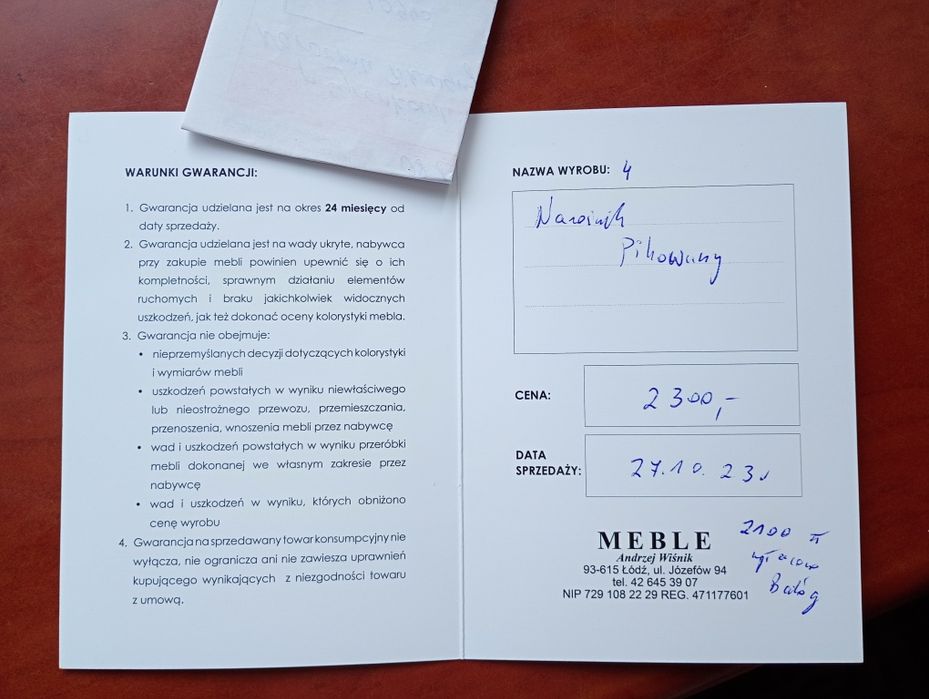 WARUNKI GWARANCJI:
1. Gwarancja udzielana jest na okres 24 miesięcy od
daty sprzedaży.
2. Gwarancja udzielana jest na wady ukryte, nabywca
przy zakupie mebli powinien upewnić się o ich
kompletności, sprawnym działaniu elementów
ruchomych i braku jakichkolwiek widocznych
uszkodzeń, jak też dokonać oceny kolorystyki mebla.
3. Gwarancja nie obejmuje:
• nieprzemyślanych decyzji dotyczących kolorystyki
i wymiarów mebli
• uszkodzeń powstałych w wyniku niewłaściwego
lub nieostrożnego przewozu, przemieszczania,
przenoszenia, wnoszenia mebli przez nabywcę
• wad i uszkodzeń powstałych w wyniku przeróbki
mebli dokonanej we własnym zakresie przez
nabywcę
• wad i uszkodzeń w wyniku, których obniżono
cenę wyrobu
4. Gwarancja na sprzedawany towar konsumpcyjny nie
wyłącza, nie ogranicza ani nie zawiesza uprawnień
kupującego wynikających z niezgodności towaru
z umową.
NAZWA WYROBU: 4
Narożnik
Pikowany
CENA: 2300,-
DATA
SPRZEDAŻY: 27.10.23
MEBLE
Andrzej Wiśnik
93-615 Łódź, ul. Józefów 94
tel. 42 645 39 07
NIP 729 108 22 29 REG. 471177601
2100 zł